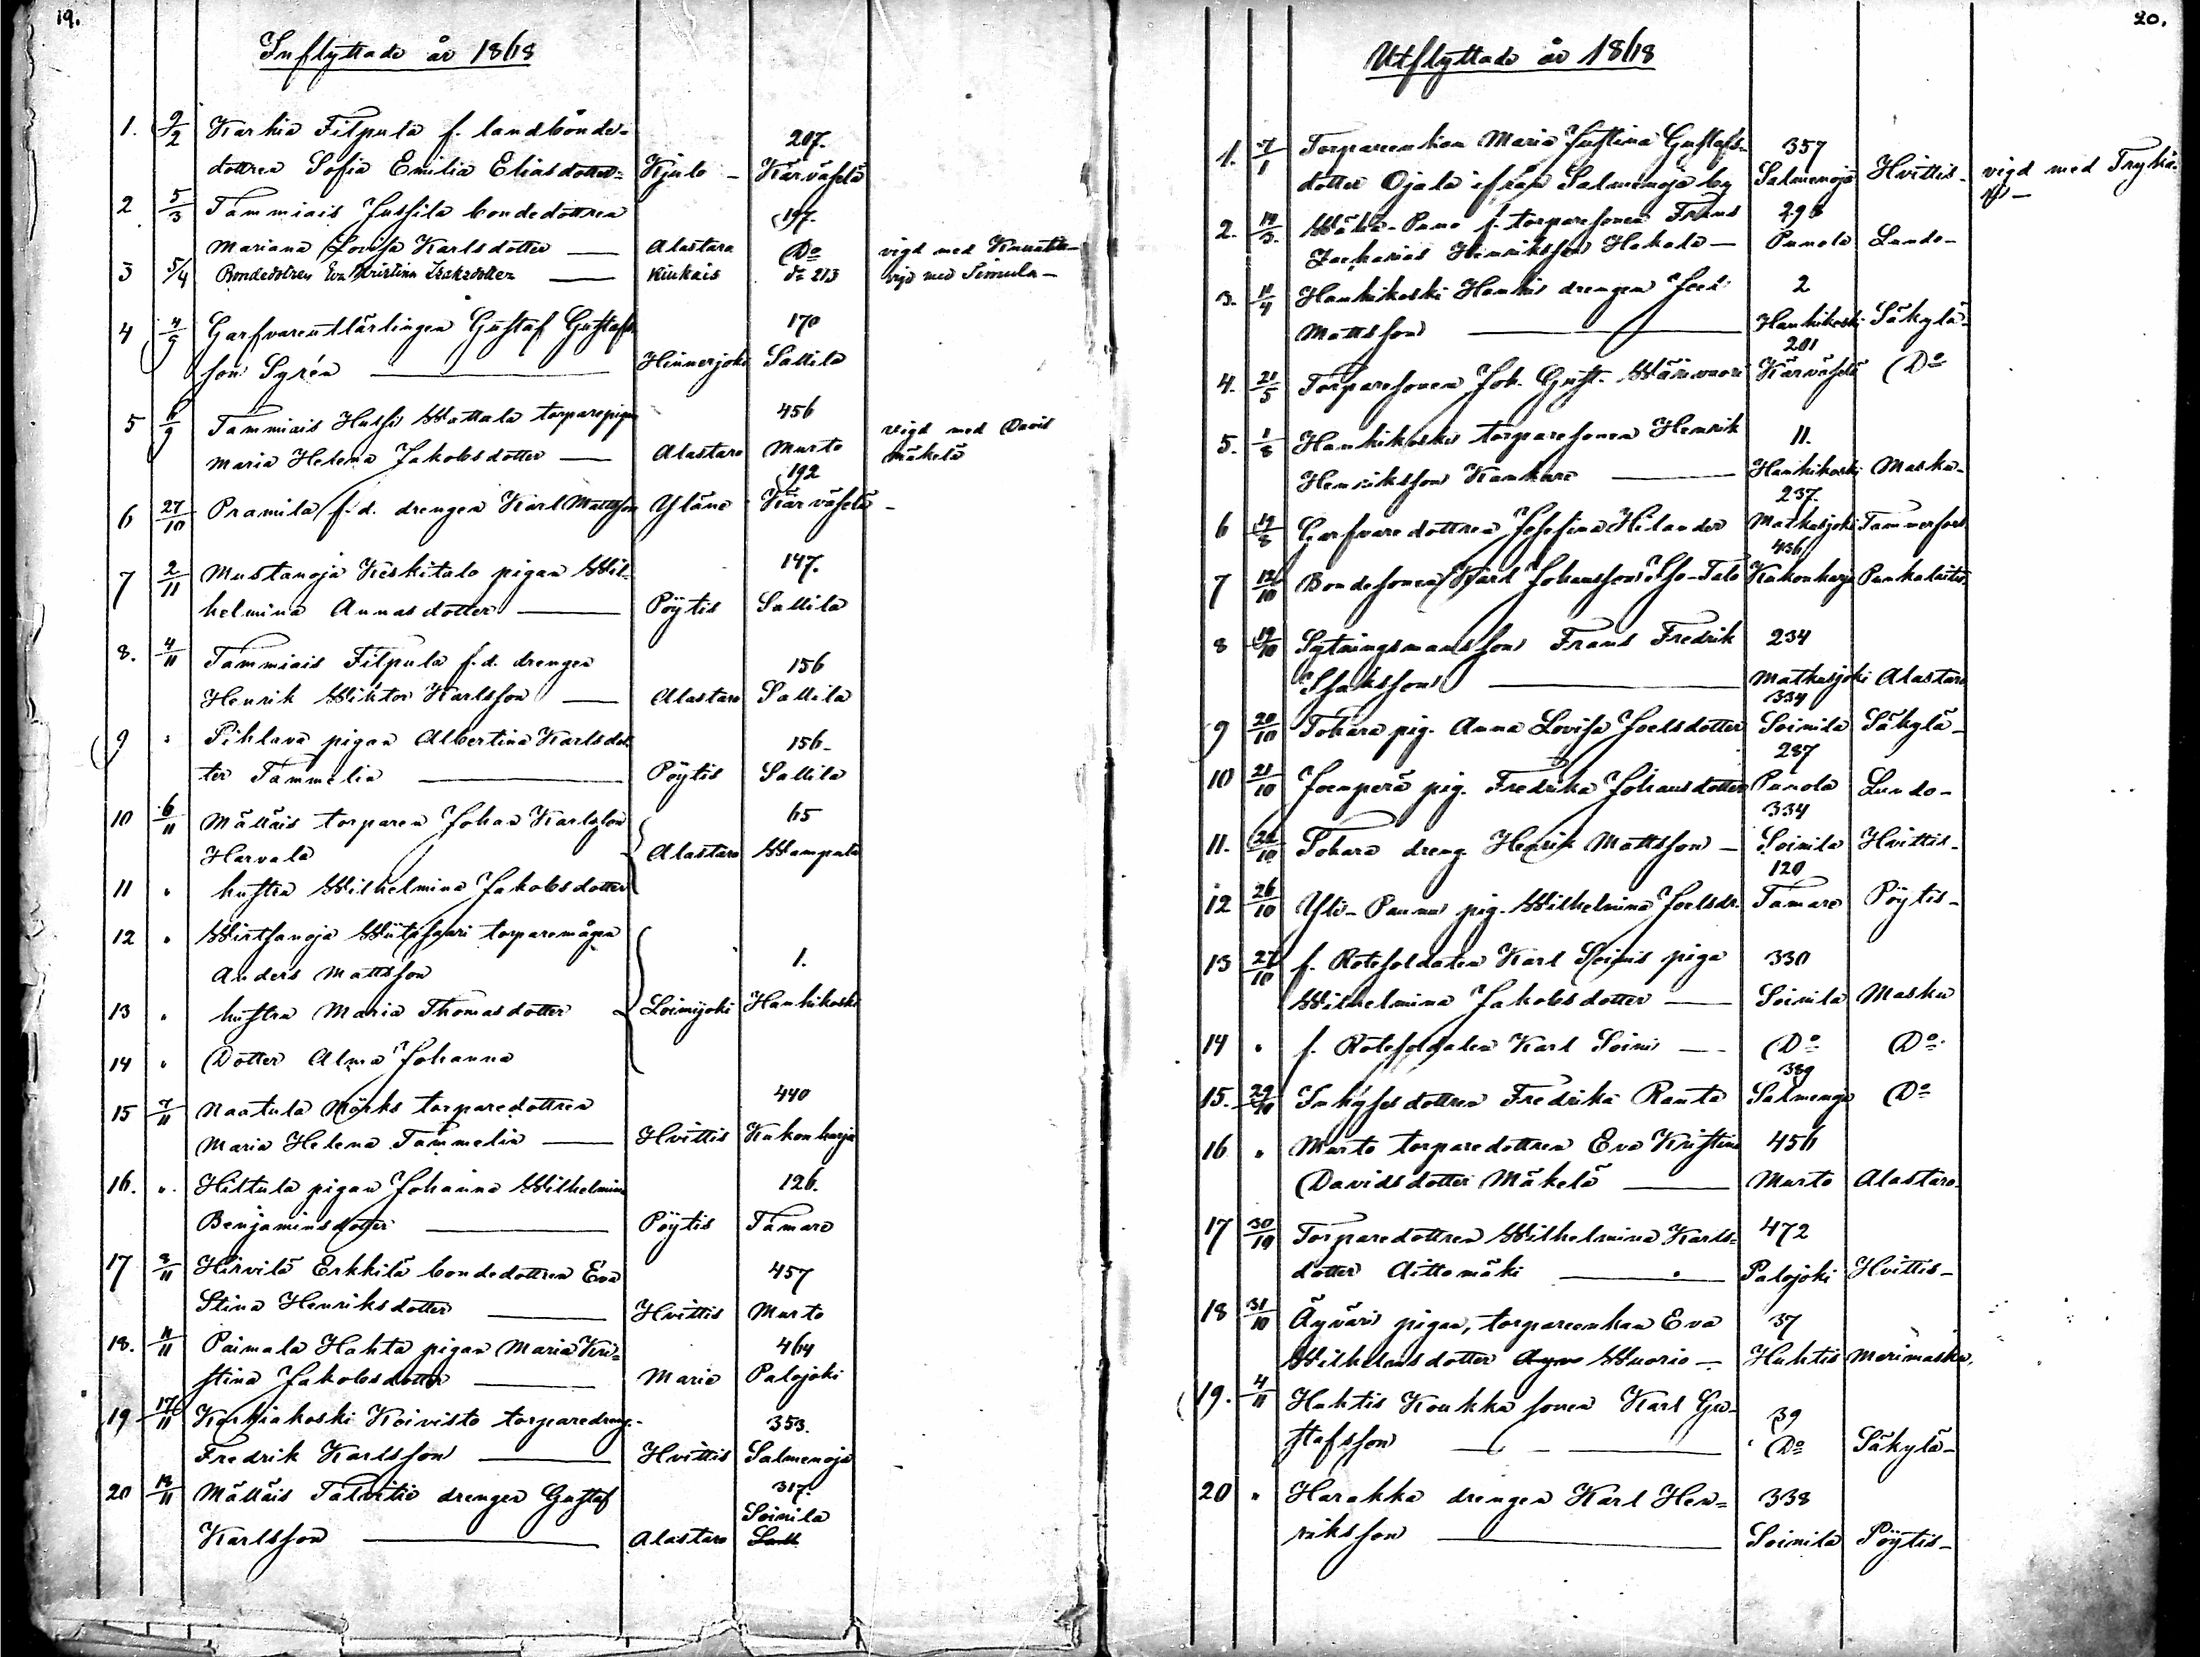 19.
Inflyttade år 1868
1. 9/2 Karhia Filpula f. landbonde-
207.
dottren Sofia Emilia Eliasdotter- Kjulo - Kärväselä
2 5/3 Tammiais Jussila bondedottren
197.
Mariana Lovisa Karlsdotter — Alastaro Do vigd med
3 5/4 Bondedotren Eva Kristina Isaksdotter — Kiukais do 213 vigd med Simula -
4 Garfvarentlärlingen Gustaf Gustafs-
170
son Syrén — Hinnerjoki Sallila
5 6/9 Tammiais Hussi Wattala torparepigan
456
vigd med David
Maria Helena Jakobsdotter — Alastaro Murto Mäkelä
192
6 27/10 Pramila f.d. drengen Karl Mattsson Yläne Kärväselä -
7 2/11 Mustanoja Keskitalo pigan Wil-
147.
helmina Annasdotter — Pöytis Sallila
8. 4/11 Tammiais Filpula f.d. drengen
156
Henrik Wiktor Karlsson — Alastaro Sallila
9 " Pihlava pigan Albertina Karlsdot-
156-
ter Tammelin — Pöytis Sallila
10 6/11 Mällais torparen Johan Karlsson
65
Harvala Alastaro Wampula
11 " hustru Wilhelmina Jakobsdotter
12 " Wirtsanoja Wiitasaari torparemågen
Anders Mattsson
1.
13 " hustru Maria Thomasdotter Loimijoki Hanhikoski
14 " Dotter Alma Johanna
15 7/11 Naatula Mörks torparedottren
440
Maria Helena Tammelin — Hvittis Kukonharja
16. " Hiltula pigan Johanna Wilhelmina
126.
Benjaminsdotter — Pöytis Tamare
17 8/11 Hirvilä Erkkilä bondedottren Eva
457
Stina Henriksdotter — Hvittis Murto
18. 11/11 Paimala Hahta pigan Maria Kri-
464
stina Jakobsdotter — Marie Palojoki
19 17/11 Karhiakoski Koivisto torparedreng-
353.
Fredrik Karlsson — Hvittis Salmenoja
20 18/11 Mällais Talvitie drengen Gustaf
317.
Soinila
Karlsson — Alastaro Sall
20.
Utflyttade år 1868
1. 7/1 Torpareenkan Maria Justina Gustafs-
357
dotter Ojala ifrån Salmenoja by Salmenoja Hvittis- vigd med
2. 19/3 Wähä-Pano f. torparesonen Frans
298
Zacharias Henriksson Hakala — Panola Lundo-
3. 11/4 Hanhikoski Hankis drengen Joel
2
Mattsson — Hanhikoski Säkylä-
201
4. 21/5 Torparesonen Joh. Gust. Kärväselä Do
5. 1/8 Hanhikoski torparesonen Henrik
11.
Henriksson Kankare — Hanhikoski Masku-
237.
6 19/8 Garfvaredottren Josefina Hilander Matkusjoki Tammerfors
436
7 12/10 Bondesonen Karl Johansson Iso-Talo Kukonharja Punkalaitio
8 19/10 Sytningsmansson Frans Fredrik
234
Isaksson — Matkusjoki Alastaro
334
9 20/10 Tokara pig. Anna Lovisa Joelsdotter Soinila Säkylä-
287
10 21/10 Joenperä pig. Fredrika Johansdotter Panola Lundo-
334
11. 24/10 Tokara dreng. Henrik Mattsson — Soinila Hvittis-
120
12 26/10 Yli-Pannu pig. Wilhelmina Joelsdr. Tamare Pöytis-
13 27/10 f. Rotesoldaten Karl Soinis piga
330
Wilhelmina Jakobsdotter — Soinila Masku
14 " f. Rotesoldaten Karl Soini — Do Do
389
15. 29/10 Inhysesdottren Fredrika Ranta Salmenoja Do
16 " Murto torparedottren Eva Kristina
456
Davidsdotter Mäkelä — Murto Alastaro
17 30/10 Torparedottren Wilhelmina Karls-
472
dotter Aittomäki — Palojoki Hvittis-
18 31/10 Äyväri pigan, torpareenkan Eva
37
Wilhelmsdotter Wuorio — Huhtis Merimasku
19. 4/11 Huhtis Koukka sonen Karl Gu-
39
stafsson — Do Säkylä-
20 " Harakka drengen Karl Hen-
338
riksson — Soinila Pöytis-